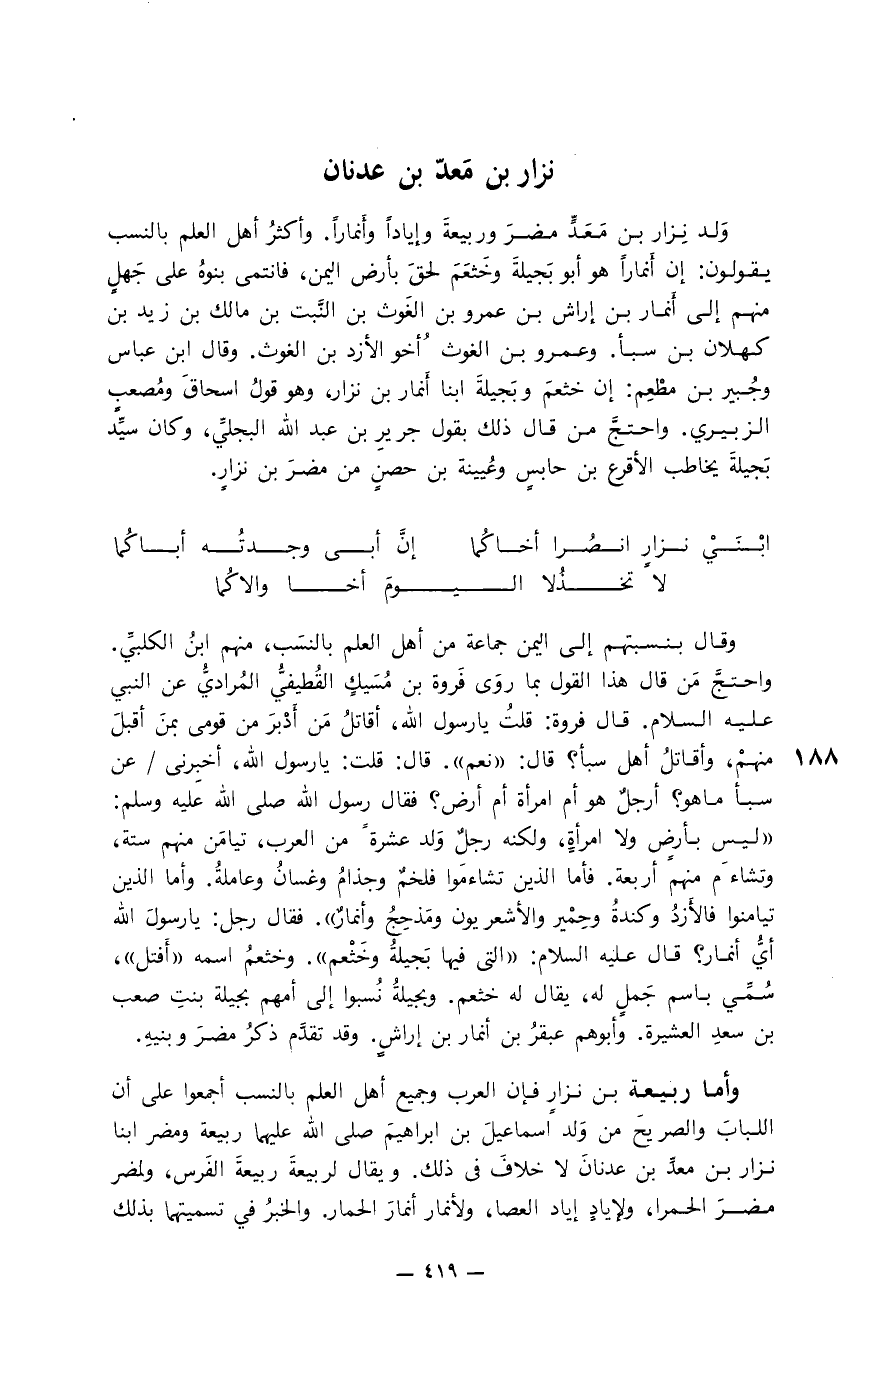 نزار بن مَعدّ بن عدنان
وَلد نِزار بن مَعَدٍّ مضرَ وربيعةَ وإياداً وأَنماراً. وأكثرُ أهل العلم بالنسب
يقولون: إن أَنماراً هو أبو بَجيلةَ وخَثعَمَ لحقَ بأرض اليمن، فانتمى بنوهُ على جَهلٍ
منهم إلى أَنمار بن إراش بن عمرو بن الغَوث بن النَّبت بن مالك بن زيد بن
كهلان بن سبأ. وعمرو بن الغوث أخو الأزد بن الغوث. وقال ابن عباس
وجُبير بن مطْعِم: إن خثعمَ وبَجيلةَ ابنا أَنمار بن نزار، وهو قولُ اسحاقَ ومُصعبٍ
الزبيري. واحتجَّ من قال ذلك بقول جريرِ بن عبد الله البجليِّ، وكان سيِّد
بَجيلةَ يخاطب الأقرع بن حابسٍ وعُيينة بن حصنٍ من مضرَ بن نزارٍ.
ابْنَيْ نزارٍ انصُرا أخاكُما إنَّ أبى وجدتُه أباكُما
لا تخذُلا اليومَ أخا والاكُما
وقال بنسبتهم إلى اليمن جماعة من أهل العلم بالنسَب، منهم ابنُ الكلبيِّ.
واحتجَّ مَن قال هذا القول بما روَى فَروة بن مُسَيكٍ القُطيفيُّ المُراديُّ عن النبي
عليه السلام. قال فروة: قلتُ يارسول الله، أقاتلُ مَن أَدْبَرَ من قومى بمنَ أقبلَ
منهمْ، وأقاتلُ أهل سبأ؟ قال: «نعم». قال: قلت: يارسول الله، أخبرنى / عن
١٨٨
سبأ ماهو؟ أرجلٌ هو أم امرأة أم أرض؟ فقال رسول الله صلى الله عليه وسلم:
«ليس بأرضٍ ولا امرأةٍ، ولكنه رجلٌ وَلد عشرةً من العرب، تيامَن منهم ستة،
وتشاءَم منهم أربعة. فأما الذين تشاءمَوا فلخمٌ وجذامُ وغسانُ وعاملةُ. وأما الذين
تيامنوا فالأزدُ وكندةُ وحِمْير والأشعريون ومَذحِجُ وأنمارٌ». فقال رجل: يارسولَ الله
أيُّ أنمار؟ قال عليه السلام: «التى فيها بَجيلةُ وخَثْعم». وخثعمُ اسمه «أفتل»،
سُمِّي باسم جَملٍ له، يقال له خثعم. وبجيلةُ نُسبوا إلى أمهم بجيلة بنتِ صعب
بن سعدِ العشيرة. وأبوهم عبقرُ بن أنمار بن إراشٍ. وقد تقدَّم ذكرُ مضرَ وبنيهِ.
وأما ربيعة بن نزارٍ فإن العرب وجميع أهل العلم بالنسب أجمعوا على أن
اللبابَ والصريحَ من وَلد اسماعيلَ بن ابراهيمَ صلى الله عليهما ربيعة ومضر ابنا
نزار بن معدِّ بن عدنانَ لا خلافَ فى ذلك. ويقال لربيعةَ ربيعةَ الفَرس، ولمضر
مضرَ الحمرا، ولإيادٍ إياد العصا، ولأنمار أنمارَ الحمار. والخبرُ في تسميتها بذلك
— ٤١٩ —